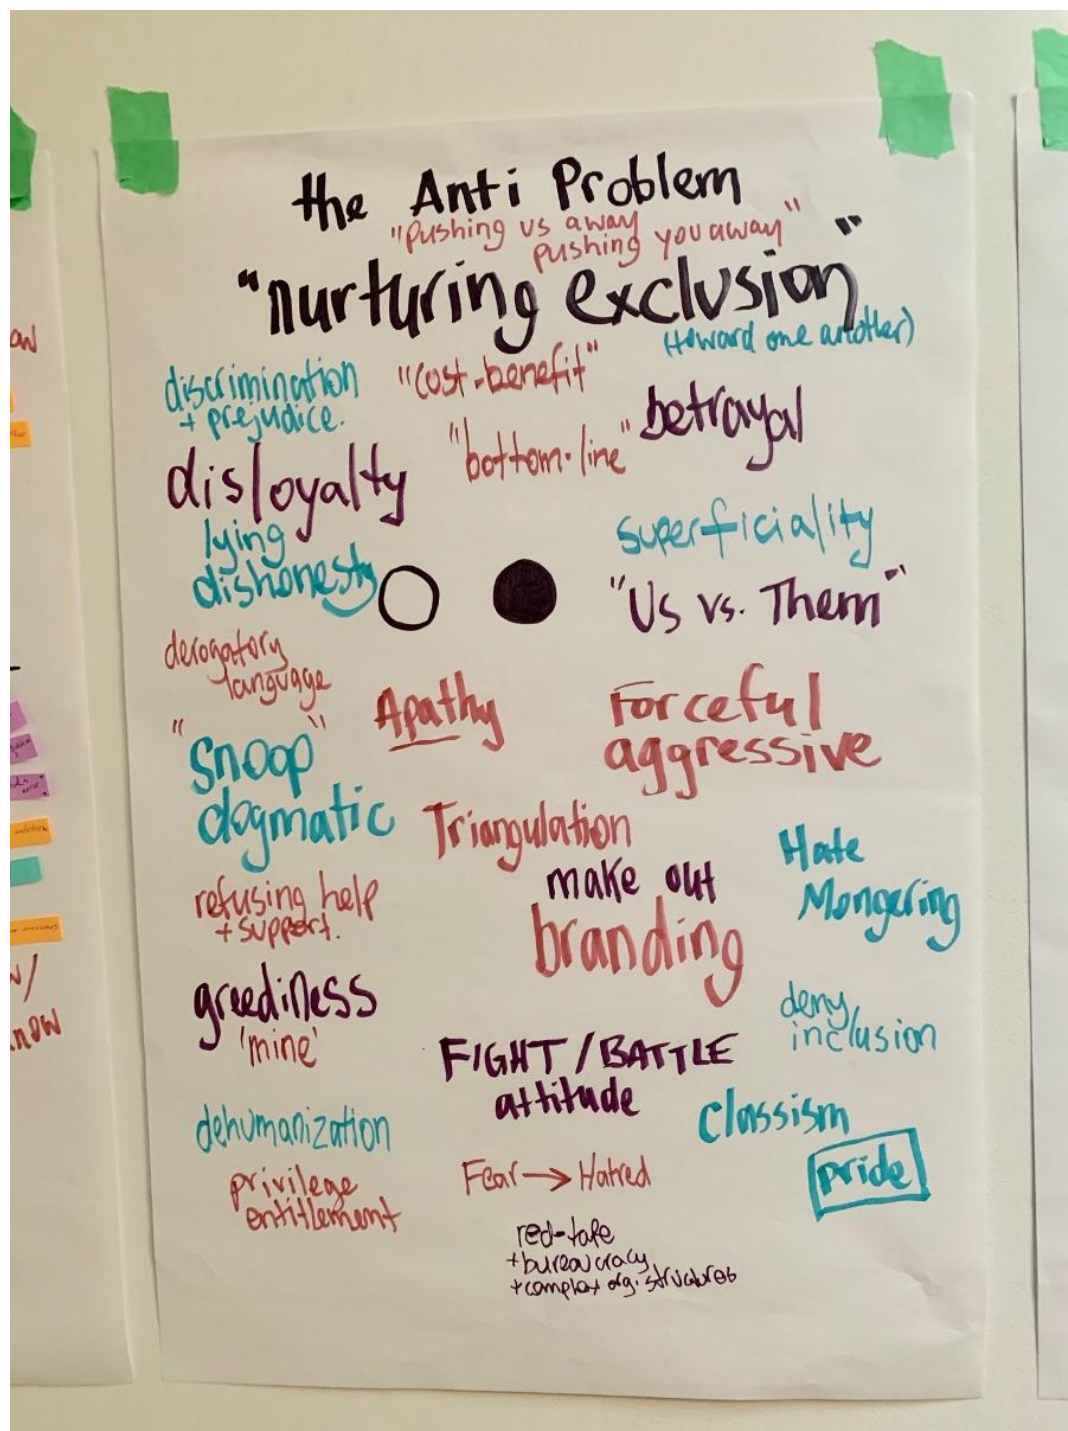 the Anti Problem
"pushing us away
pushing you away"
"nurturing exclusion"
(toward one another)
discrimination
+ prejudice.
"cost-benefit"
betrayal
"bottom-line"
disloyalty
lying
dishonesty
superficiality
"Us vs. Them"
derogatory
language
Apathy
Forceful
aggressive
"snoop"
dogmatic
Triangulation
make out
branding
Hate
Mongering
refusing help
+ support.
greediness
'mine'
deny
inclusion
FIGHT/BATTLE
attitude
classism
pride
dehumanization
privilege
entitlement
Fear → Hatred
red-tape
+ bureaucracy
+ complex org. structures
now